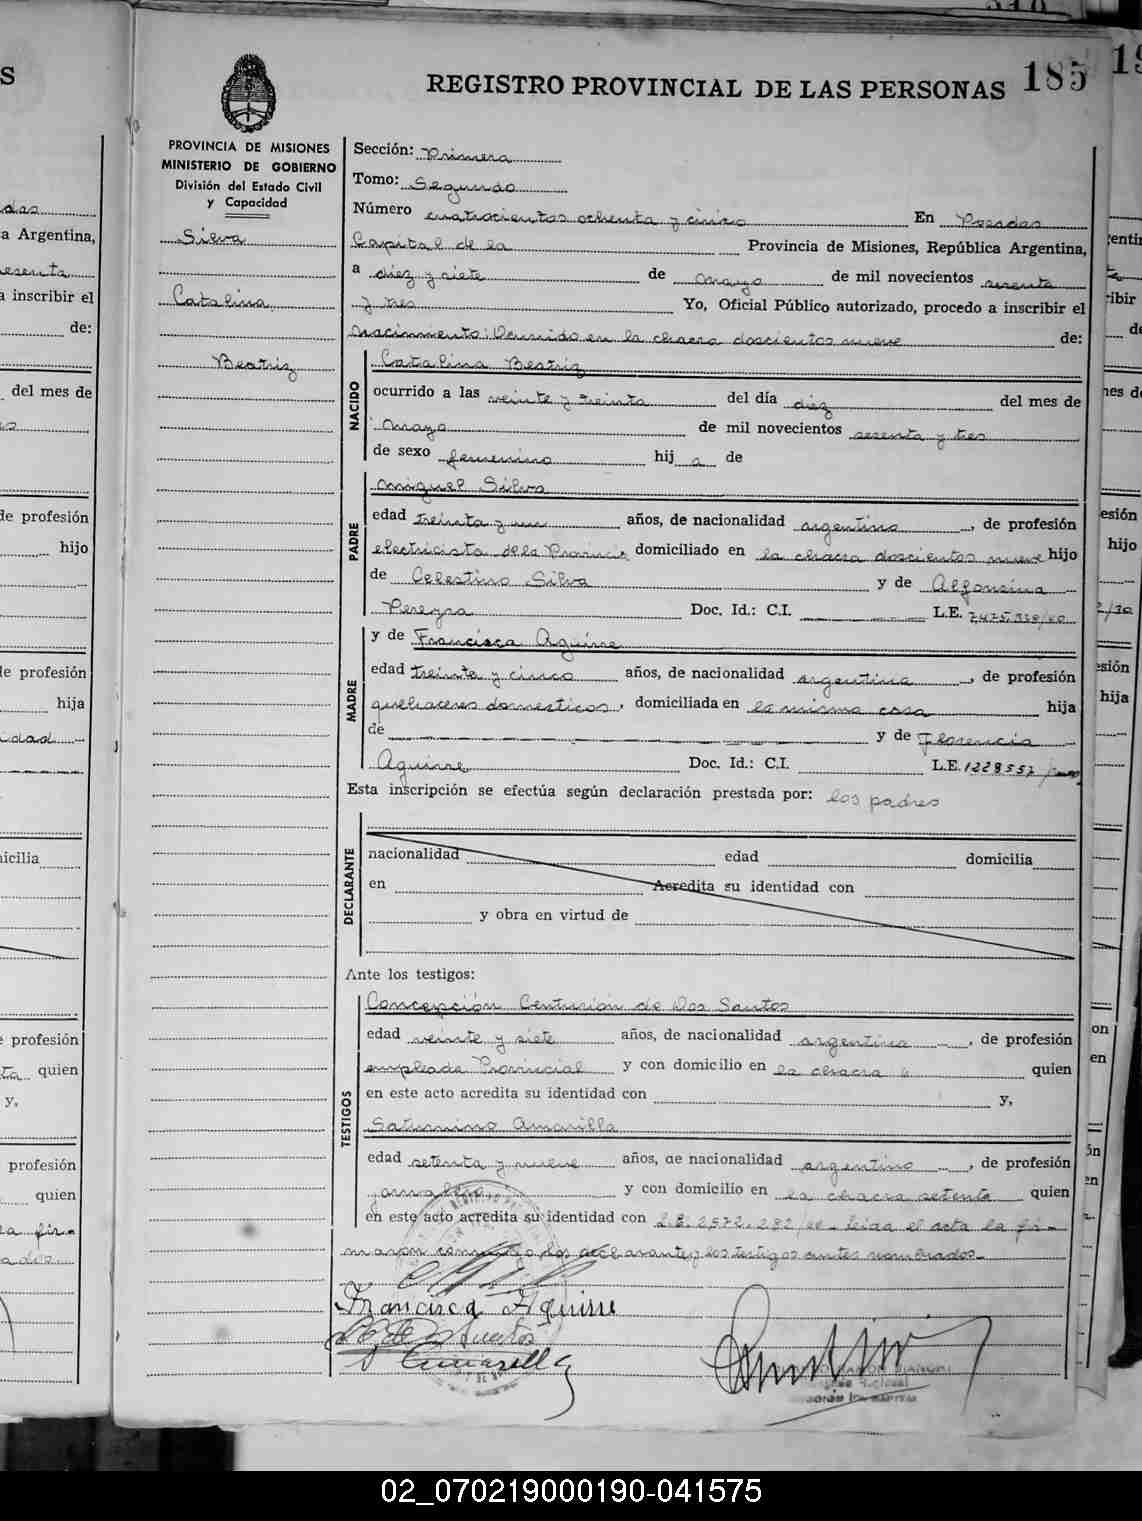 REGISTRO PROVINCIAL DE LAS PERSONAS 185
PROVINCIA DE MISIONES
MINISTERIO DE GOBIERNO
División del Estado Civil
y Capacidad
Silva
Catalina
Beatriz
Sección: Primera
Tomo: Segundo
Número cuatrocientos ochenta y cinco En Posadas
Capital de la Provincia de Misiones, República Argentina,
a diez y siete de mayo de mil novecientos sesenta
y tres Yo, Oficial Público autorizado, procedo a inscribir el
nacimiento: Ocurrido en la chacra doscientos nueve de:
NACIDO
Catalina Beatriz
ocurrido a las veinte y treinta del día diez del mes de
mayo de mil novecientos sesenta y tres
de sexo femenino hij a de
PADRE
Miguel Silva
edad treinta y un años, de nacionalidad argentino, de profesión
electricista de la Provincia domiciliado en la chacra doscientos nueve hijo
de Celestino Silva y de Alfonsina
Pereyra Doc. Id.: C.I. L.E. 7475.338/40
MADRE
y de Francisca Aguirre
edad treinta y cinco años, de nacionalidad argentina, de profesión
quehaceres domesticos, domiciliada en la misma casa hija
de y de Florencia
Aguirre Doc. Id.: C.I. L.E. 1228557
Esta inscripción se efectúa según declaración prestada por: los padres
DECLARANTE
nacionalidad edad domicilia
en Acredita su identidad con
y obra en virtud de
Ante los testigos:
TESTIGOS
Concepción Centurión de Dos Santos
edad veinte y siete años, de nacionalidad argentina, de profesión
empleada Provincial y con domicilio en la chacra 6 quien
en este acto acredita su identidad con y,
Saturnino Amarilla
edad setenta y nueve años, de nacionalidad argentino, de profesión
jornalero y con domicilio en la chacra setenta quien
en este acto acredita su identidad con L.E. 2.572.282/ Leida el acta la fir-
maron conmigo los declarantes y los testigos antes nombrados.
Francisca Aguirre
Amarilla
02_070219000190-041575